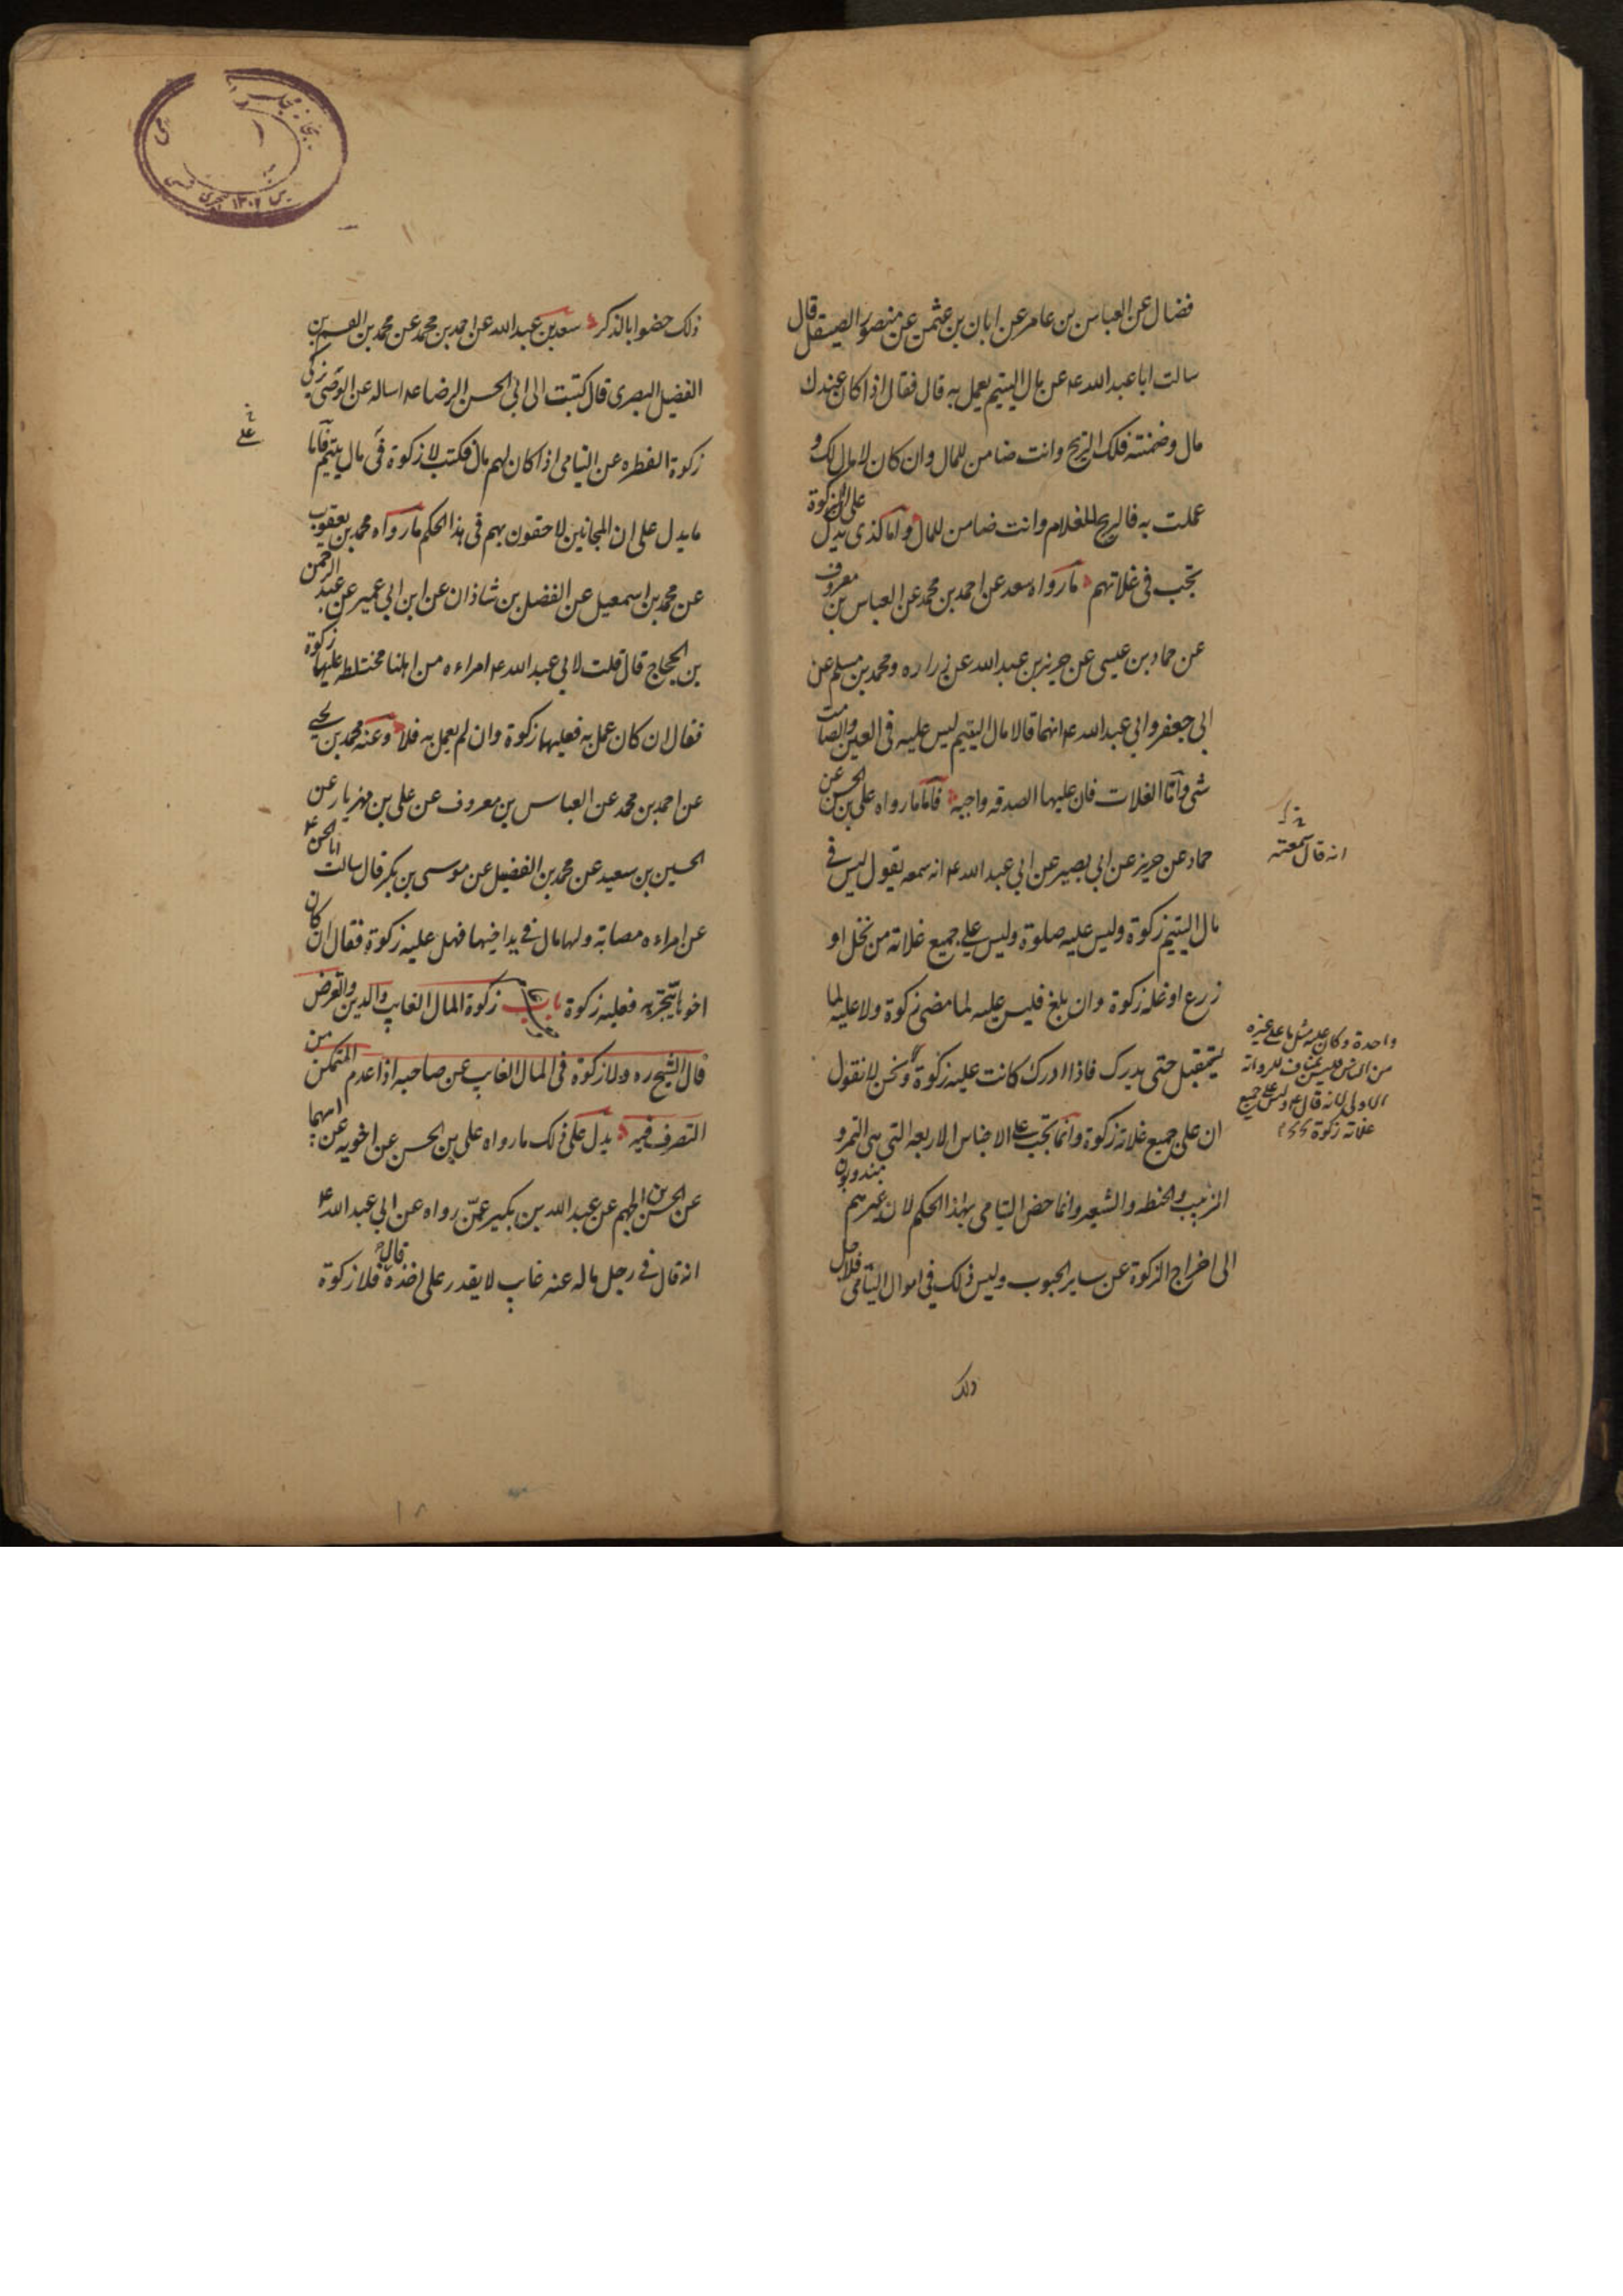 فضال عن العباس بن عامر عن ابان بن عثمن عن منصور الصيقل قال
سالت ابا عبد الله ع عن مال اليتيم يعمل به قال فقال اذا كان عندك
مال وضمنته فلك الربح وانت ضامن للمال وان كان لا مال لك و
عملت به فالربح للغلام وانت ضامن للمال واما الذى يدل على ان الزكوة
تجب فى غلاتهم ما رواه سعد عن احمد بن محمد عن العباس بن معروف
عن حماد بن عيسى عن حريز بن عبد الله عن زراره ومحمد بن مسلم عن
ابى جعفر وابى عبد الله ع انهما قالا مال اليتيم ليس عليه فى العين والصامت
شى واما الغلات فان عليها الصدقه واجبه فاما ما رواه على بن الحسن عن
حماد عن حريز عن ابى بصير عن ابى عبد الله ع انه سمعه يقول ليس فى
مال اليتيم زكوة وليس عليه صلوة وليس على جميع غلاته من نخل او
زرع او غله زكوة وان بلغ فليس عليه لما مضى زكوة ولا عليه لما
يستقبل حتى يدرك فاذا ادرك كانت عليه زكوة ونحن لا نقول
ان على جميع غلاته زكوة وانما تجب على الاجناس الاربعه التى هى التمر و
الزبيب والحنطه والشعير وانما خص اليتامى بهذا الحكم لان غيرهم مندوبون
الى اخراج الزكوة عن ساير الحبوب وليس ذلك فى اموال اليتامى فلاجل
ذلك
انه قال سمعته
واحدة وكان عليه مثل ما على غيره
من الناس فليس بمناف للروايه
الاولى لانه قال ع وليس على جميع
غلاته زكوة
ذلك خصوا بالذكر سعد بن عبد الله عن احمد بن محمد عن محمد بن القسم بن
الفضيل البصرى قال كتبت الى ابى الحسن الرضا ع اساله عن الوصى يزكى
زكوة الفطره عن اليتامى اذا كان لهم مال فكتب لا زكوة فى مال يتيم فاما
على
ما يدل على ان المجانين لاحقون بهم فى هذا الحكم ما رواه محمد بن يعقوب
عن محمد بن اسمعيل عن الفضل بن شاذان عن ابن ابى عمير عن عبد الرحمن
بن الحجاج قال قلت لابى عبد الله ع امراءه من اهلنا مختلطه عليها زكوة
فقال ان كان عمل به فعليها زكوة وان لم يعمل به فلا وعنه محمد بن يحيى
عن احمد بن محمد عن العباس بن معروف عن على بن مهزيار عن
الحسين بن سعيد عن محمد بن الفضيل عن موسى بن بكر قال سالت ابا الحسن ع
عن امراءه مصابة ولها مال فى يد اخيها فهل عليه زكوة فقال ان كان
اخوها يتجر به فعليه زكوة باب زكوة المال الغايب والدين والقرض
قال الشيخ ره ولا زكوة فى المال الغايب عن صاحبه اذا عدم التمكن من
التصرف فيه يدل على ذلك ما رواه على بن الحسن عن اخويه عن ابيهما
عن الحسن بن الجهم عن عبد الله بن بكير عمن رواه عن ابى عبد الله ع
انه قال فى رجل ماله عنه غايب لا يقدر على اخذه قال فلا زكوة
١٨